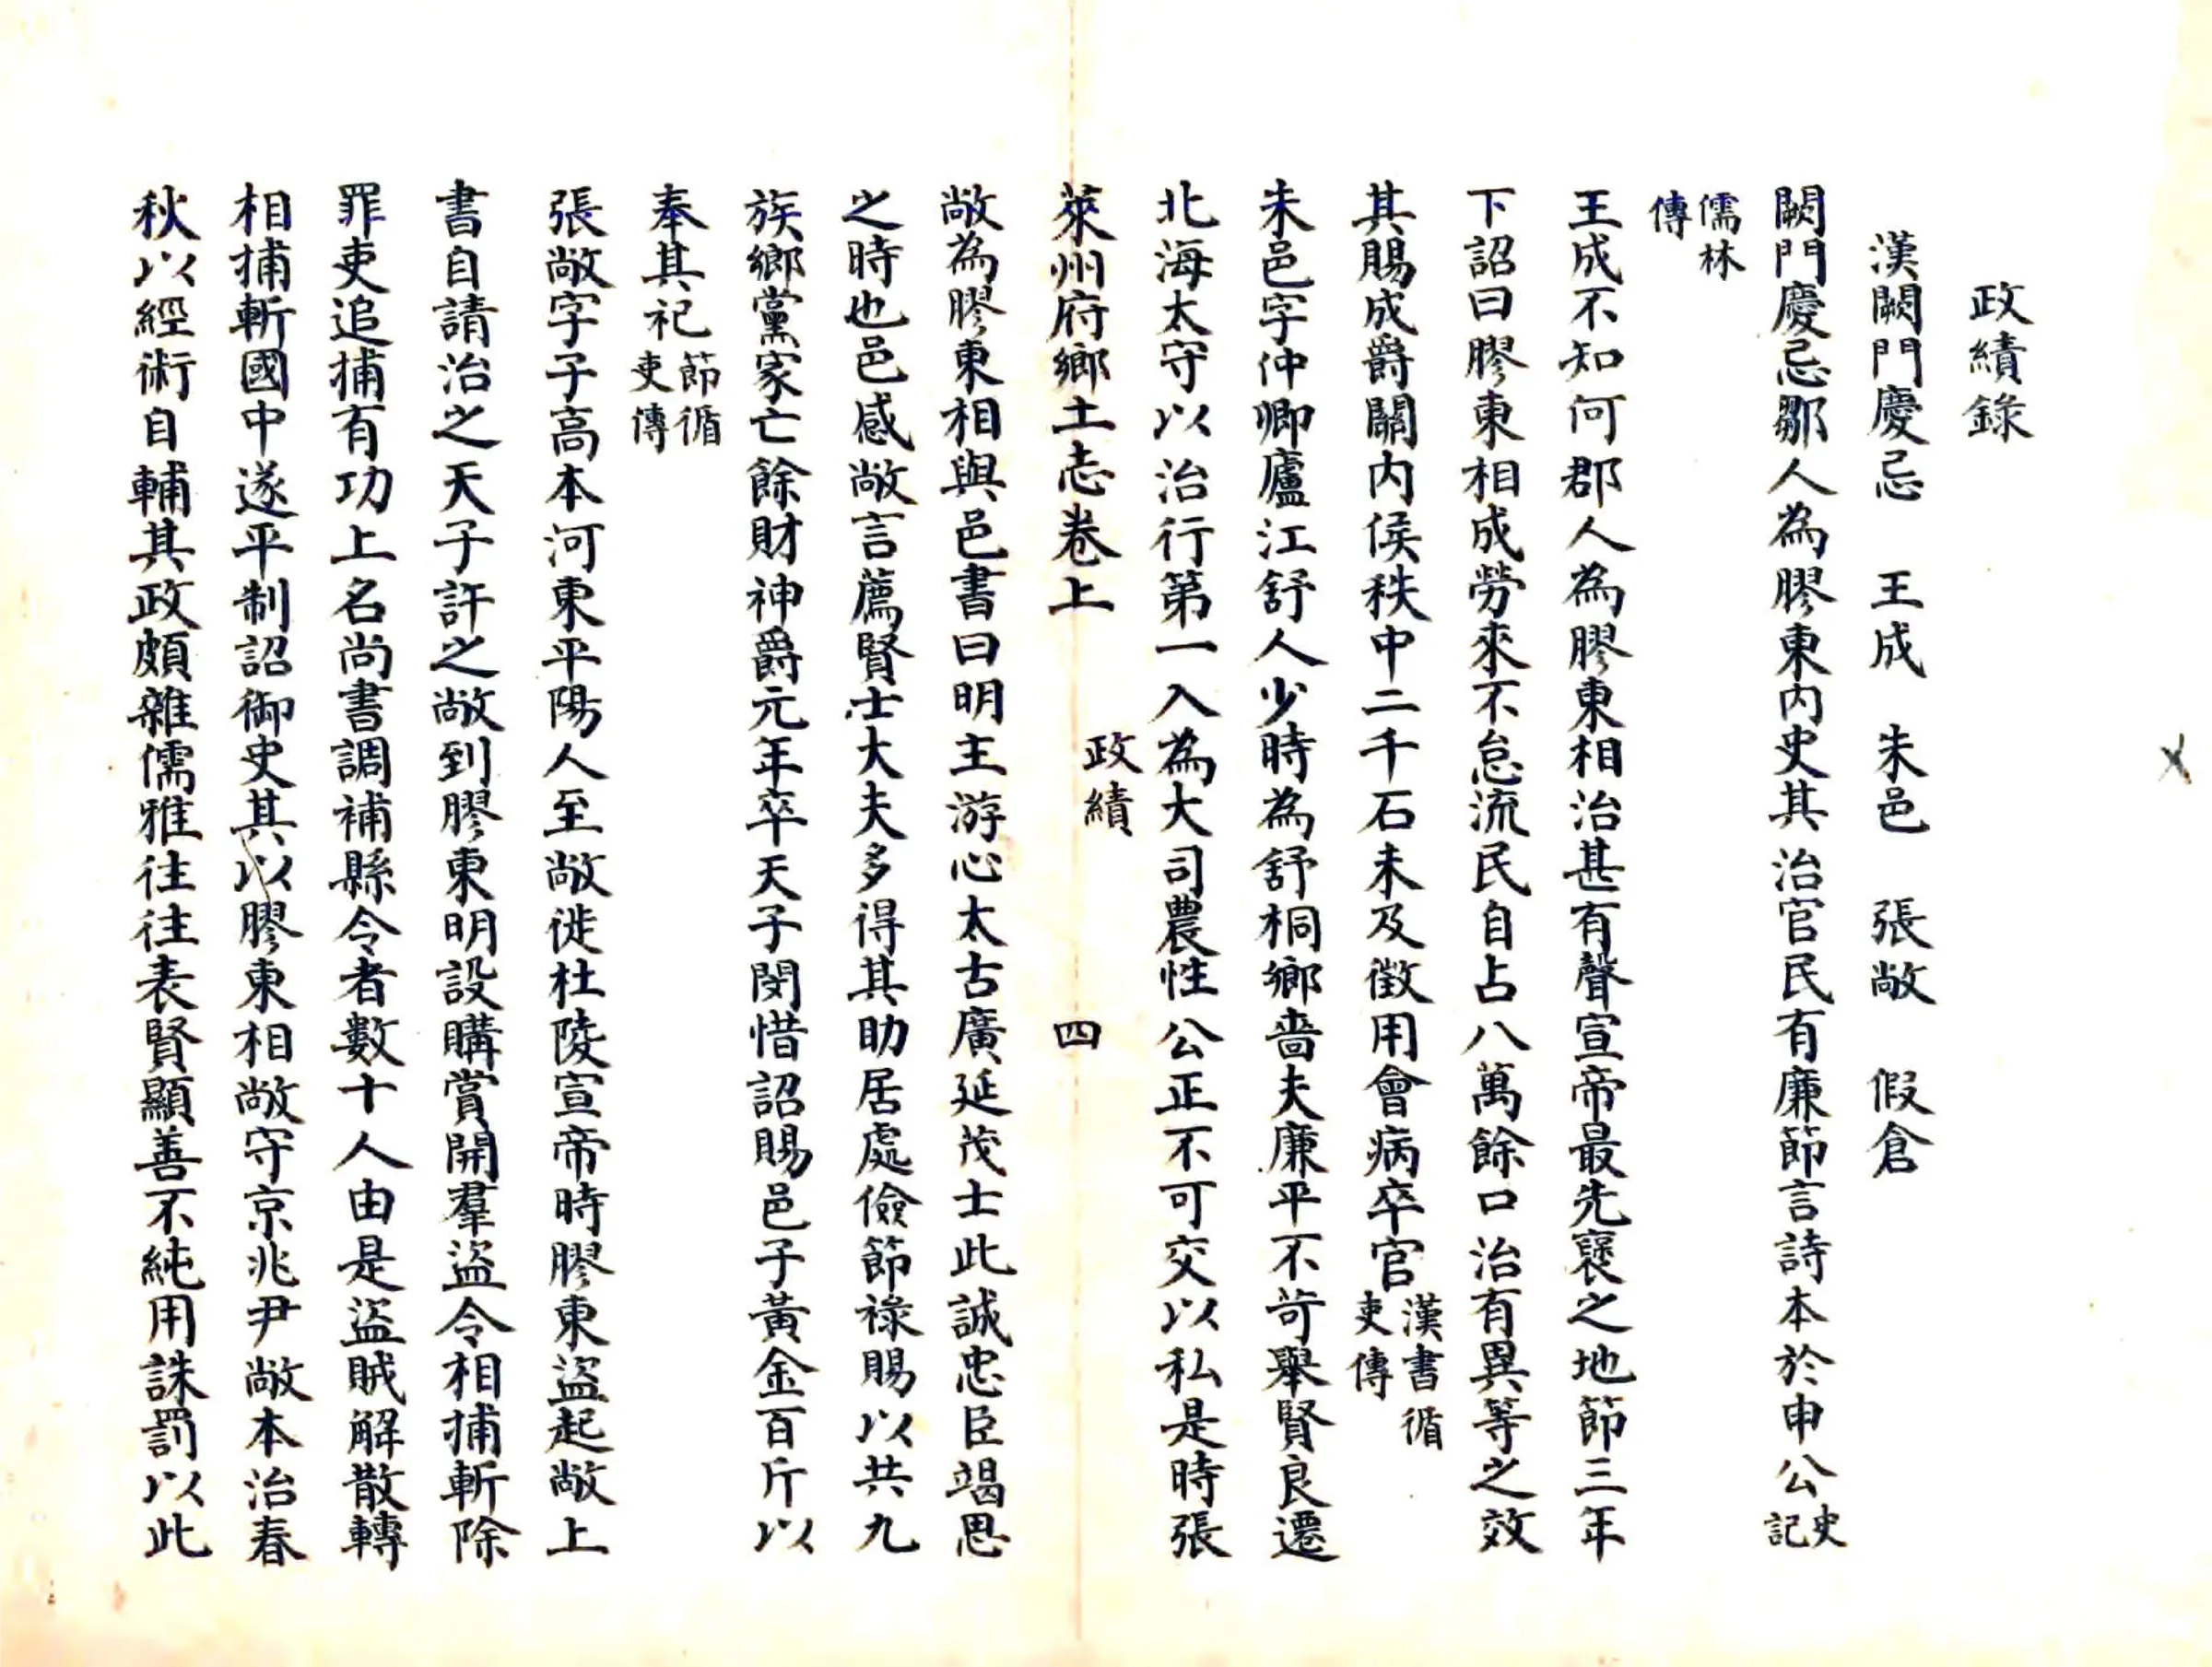 政績錄
漢闕門慶忌　王成　朱邑　張敞　假倉
闕門慶忌鄒人為膠東內史其治官民有廉節言詩本於申公史記
儒林傳
王成不知何郡人為膠東相治甚有聲宣帝最先襃之地節三年
下詔曰膠東相成勞來不怠流民自占八萬餘口治有異等之效
其賜成爵關內侯秩中二千石未及徵用會病卒官漢書循吏傳
朱邑字仲卿廬江舒人少時為舒桐鄉嗇夫廉平不苛舉賢良遷
北海太守以治行第一入為大司農性公正不可交以私是時張
萊州府鄉土志卷上　政績　四
敞為膠東相與邑書曰明主游心太古廣延茂士此誠忠臣竭思
之時也邑感敞言薦賢士大夫多得其助居處儉節祿賜以共九
族鄉黨家亡餘財神爵元年卒天子閔惜詔賜邑子黃金百斤以
奉其祀節循吏傳
張敞字子高本河東平陽人至敞徙杜陵宣帝時膠東盜起敞上
書自請治之天子許之敞到膠東明設購賞開羣盜令相捕斬除
罪吏追捕有功上名尚書調補縣令者數十人由是盜賊解散轉
相捕斬國中遂平制詔御史其以膠東相敞守京兆尹敞本治春
秋以經術自輔其政頗雜儒雅往往表賢顯善不純用誅罰以此